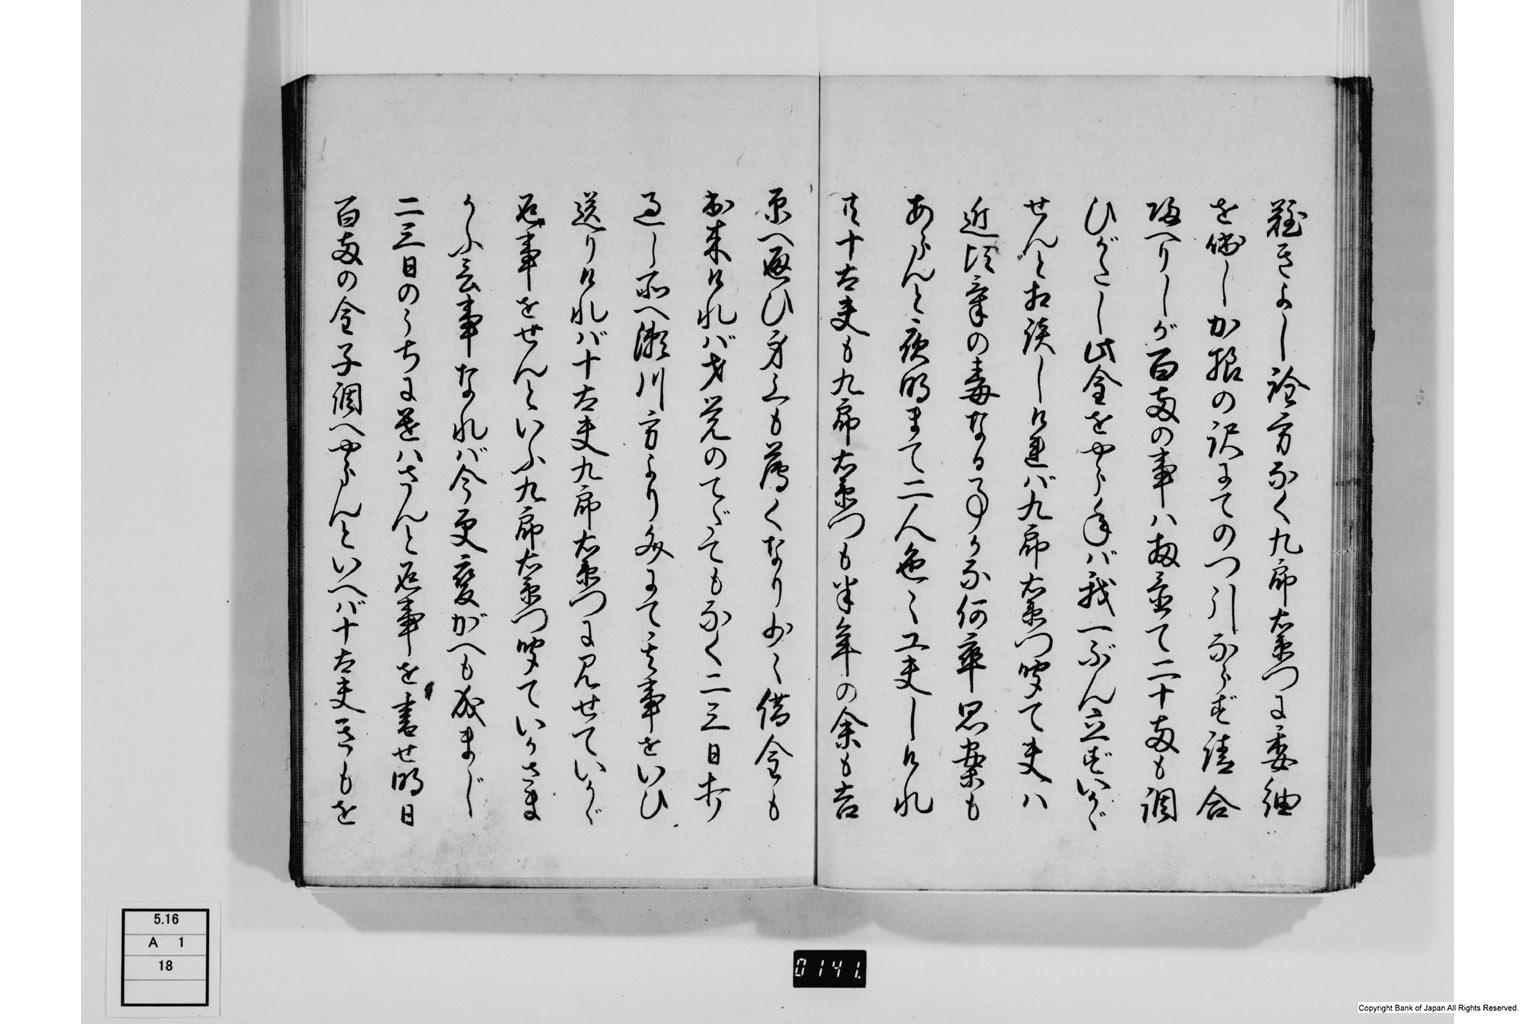 難きよし詮方なく九郎右衛門に委細
を咄しか様の訳にてのつ引ならず請合
帰へりしが百両の事ハ扨置て二十両も調
ひがたし此金をやらねバ我一ぶん立ずいかゞ
せんと相談しけれバ九郎右衛門聞て夫ハ
近頃気の毒なる事かな何卒思案も
あらんと夜明まて二人色々工夫しけれ
共十太夫も九郎右衛門も半年の余も吉
原へ通ひ身上も薄くなり少々借金も
出来けれバ才覚のてだても なく二三日打
過し所へ瀬川方より文にて 事をいひ
送りけれバ十太夫九郎右衛門に見せていかゞ
返事をせんといふ九郎右衛門聞ていかさま
かふ云事なれバ今更変がへも成まじ
二三日のうちに遣ハさんと返事を書せ明日
百両の金子調へやらんといへバ十太夫きもを
5.16
A 1
18
0141.
Copyright Bank of Japan All Rights Reserved.